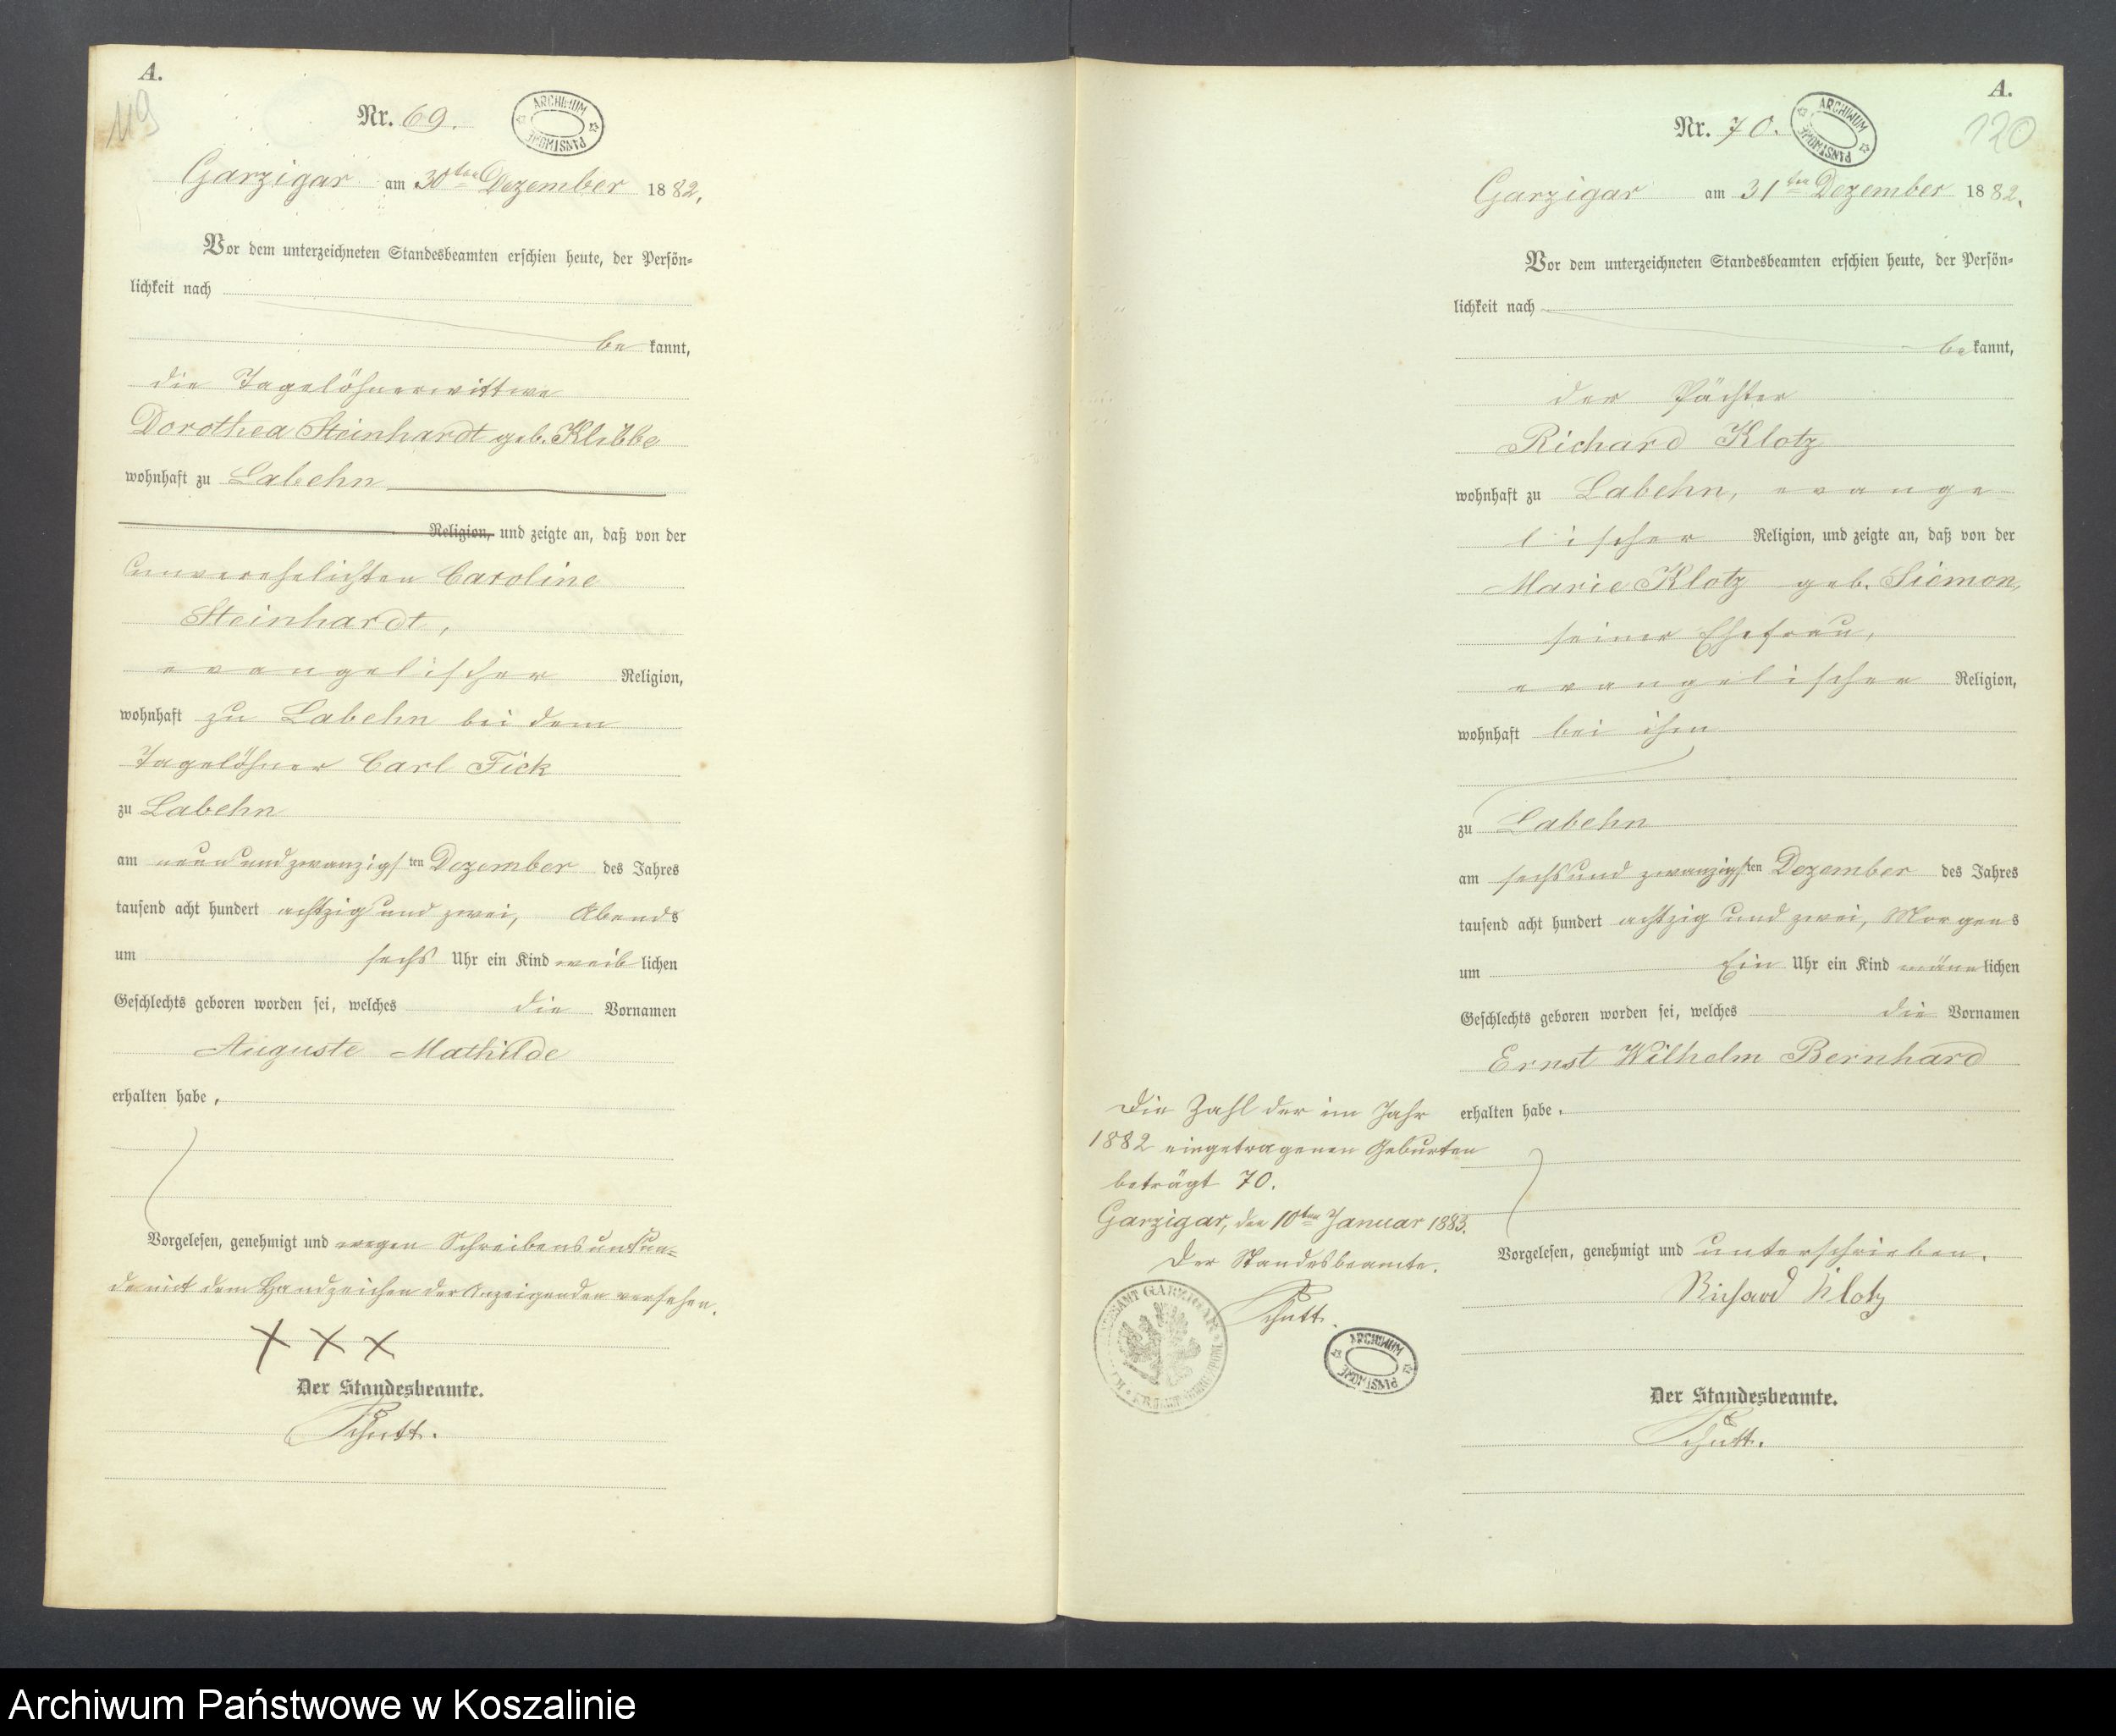 A.
119
Nr. 69.
ARCHIWUM PAŃSTWOWE
Garzigar am 30ten Dezember 1882.
Vor dem unterzeichneten Standesbeamten erschien heute, der Persön-
lichkeit nach
be kannt,
die Tagelöhnerwittwe
Dorothea Steinhardt geb. Klibbe
wohnhaft zu Labehn
Religion, und zeigte an, daß von der
unverehelichten Caroline
Steinhardt,
evangelischer Religion,
wohnhaft zu Labehn bei dem
Tagelöhner Carl Fick
zu Labehn
am neunundzwanzigsten Dezember des Jahres
tausend acht hundert achtzig und zwei, Abends
um sechs Uhr ein Kind weiblichen
Geschlechts geboren worden sei, welches die Vornamen
Auguste Mathilde
erhalten habe,
Vorgelesen, genehmigt und wegen Schreibensunkun-
de mit dem Handzeichen der Anzeigenden versehen.
X X X
Der Standesbeamte.
Schutt.
A.
120
Nr. 70.
ARCHIWUM PAŃSTWOWE
Garzigar am 31ten Dezember 1882.
Vor dem unterzeichneten Standesbeamten erschien heute, der Persön-
lichkeit nach
bekannt,
der Pächter
Richard Klotz
wohnhaft zu Labehn, evange-
lischer Religion, und zeigte an, daß von der
Marie Klotz geb. Siemon,
seiner Ehefrau,
evangelischer Religion,
wohnhaft bei ihm
zu Labehn
am sechsund zwanzigsten Dezember des Jahres
tausend acht hundert achtzig und zwei, Morgens
um Ein Uhr ein Kind männlichen
Geschlechts geboren worden sei, welches die Vornamen
Ernst Wilhelm Bernhard
erhalten habe.
Vorgelesen, genehmigt und unterschrieben.
Richard Klotz
Der Standesbeamte.
Schutt.
Die Zahl der im Jahr
1882 eingetragenen Geburten
beträgt 70.
Garzigar, den 10ten Januar 1883.
Der Standesbeamte.
Schutt.
GARZIGAR
ARCHIWUM PAŃSTWOWE
Archiwum Państwowe w Koszalinie